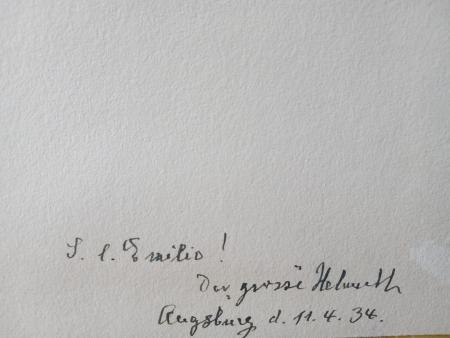 S. l. Emilio!
Der grosse Helmuth
Augsburg d. 11.4.34.